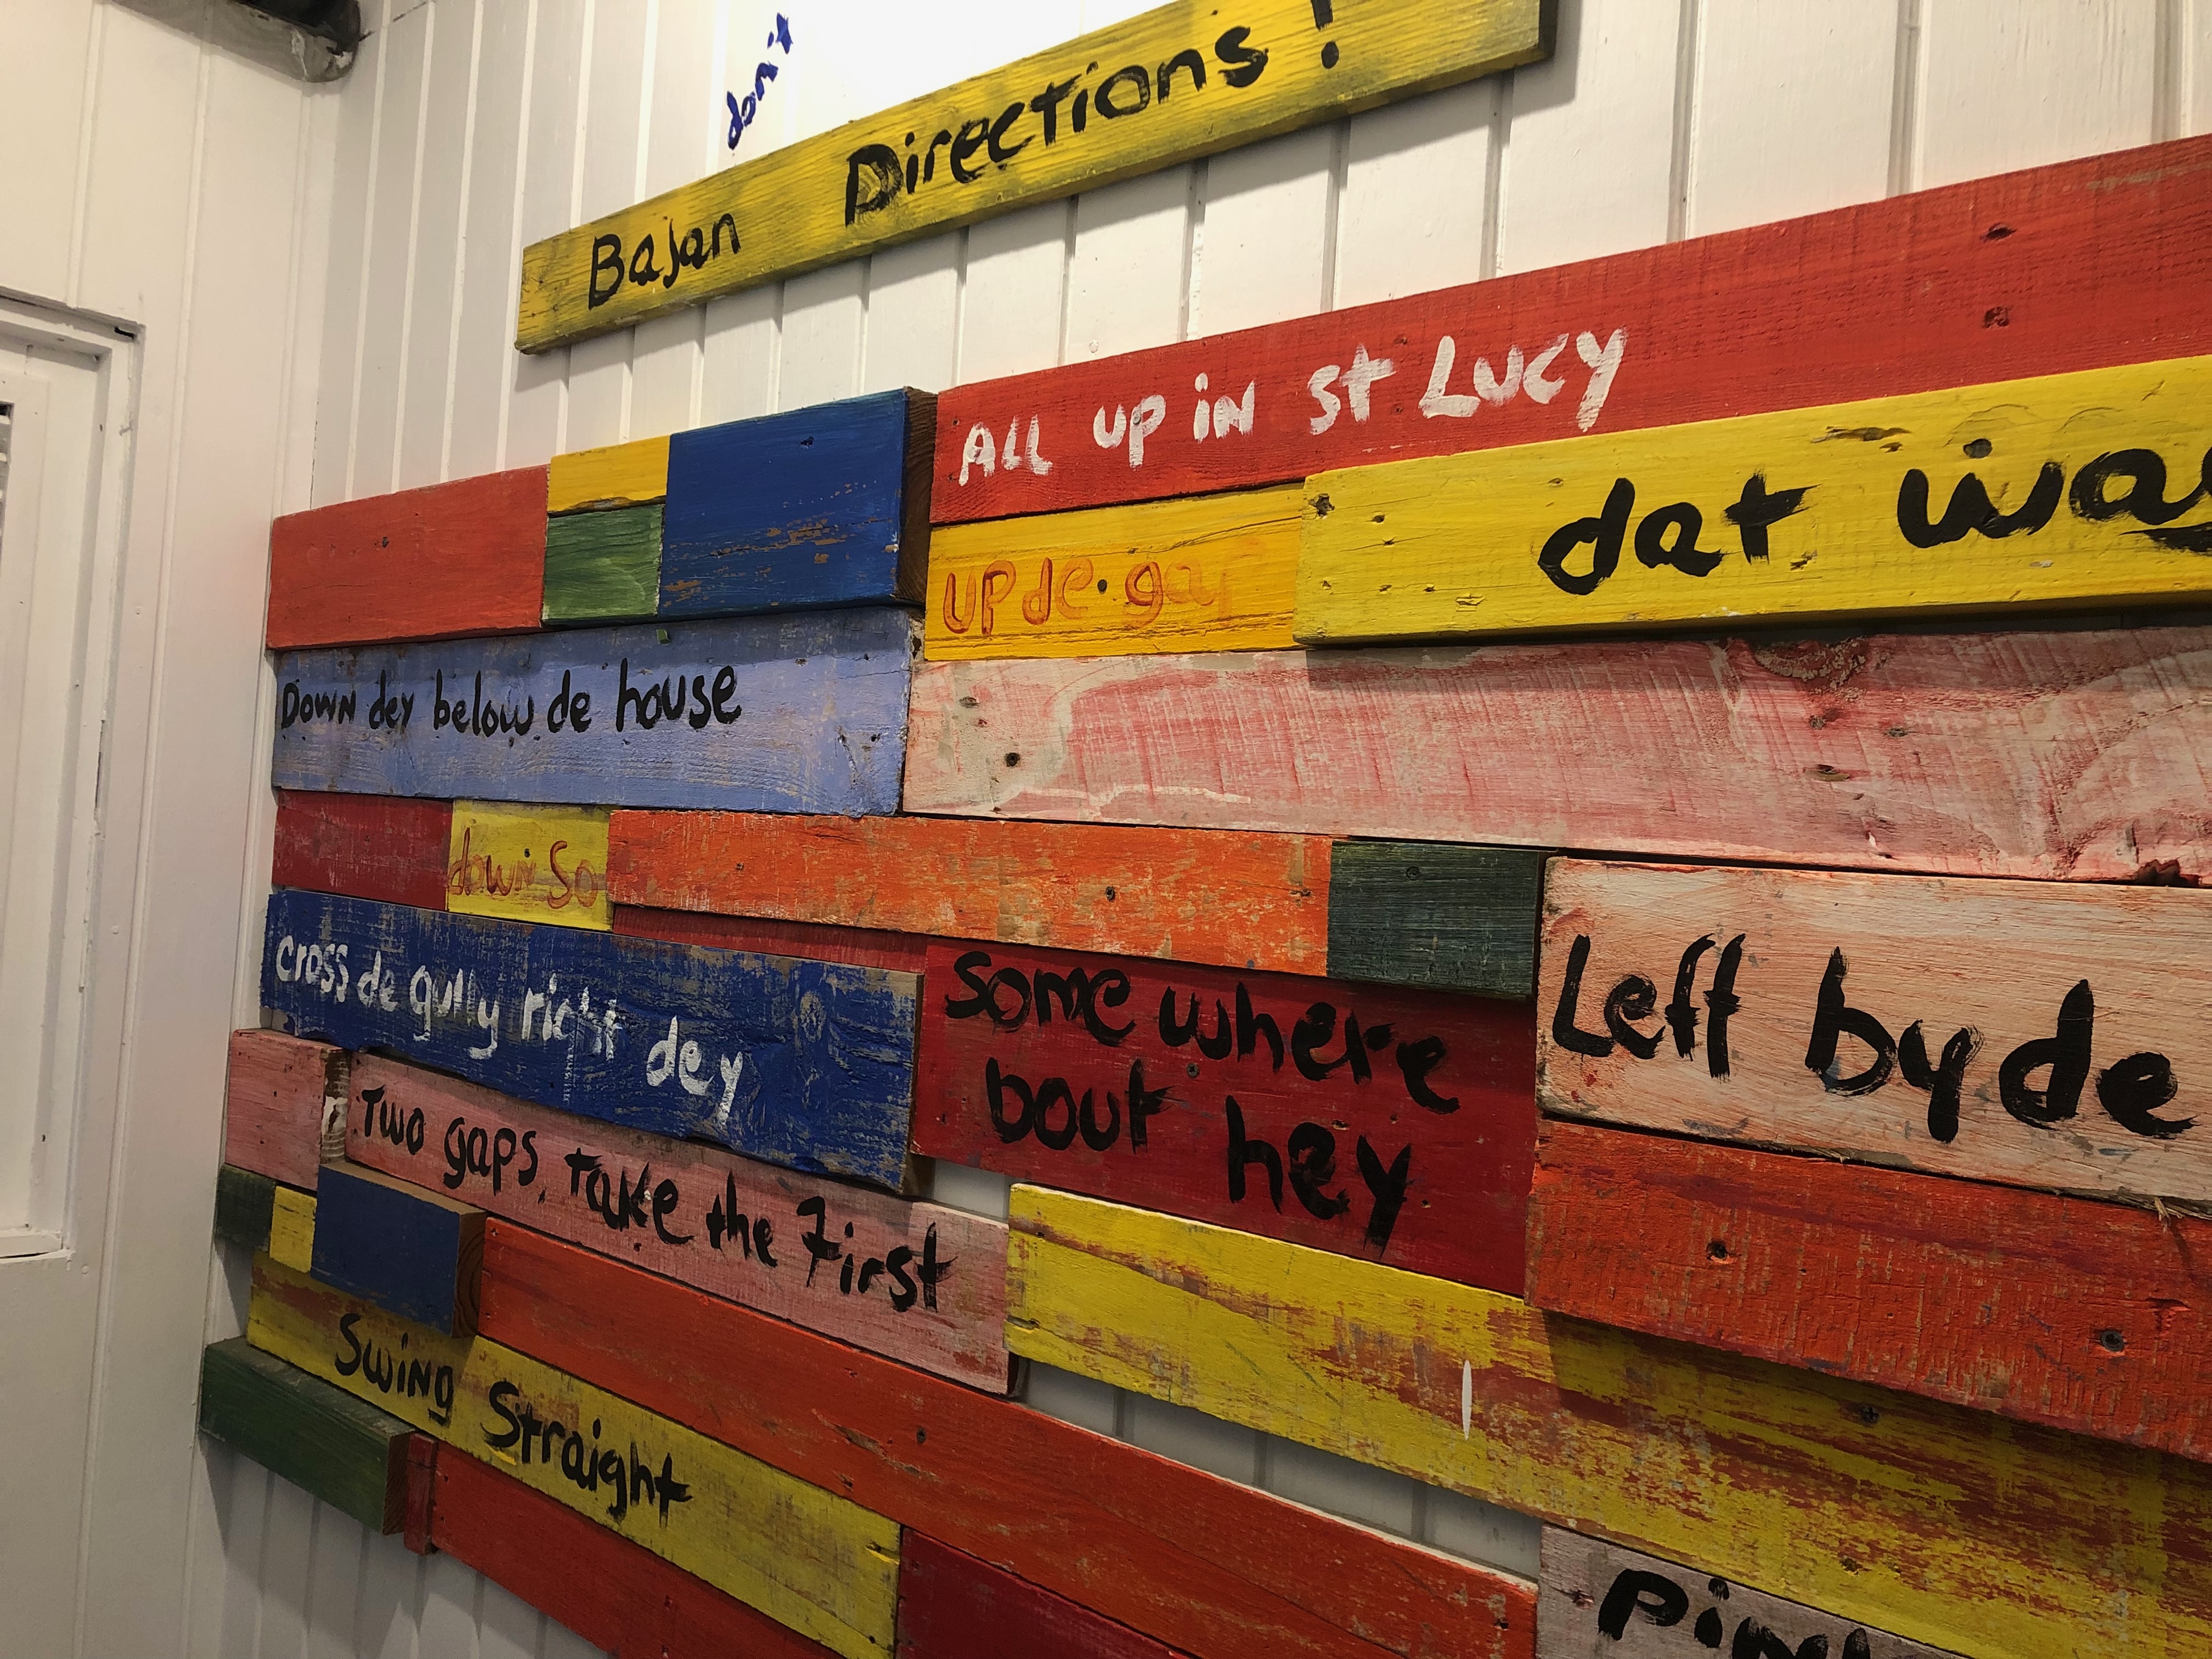 don't
Bajan Directions!
ALL UP IN St LUCY
UP de ga
dat wa
DOWN dey below de house
down So
cross de gully right dey
Some where
bout hey
Left by de
Two gaps, take the First
Swing Straight